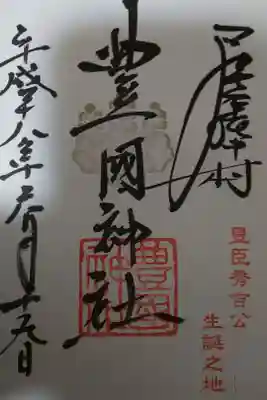 尾張中村
豊臣秀吉公
生誕之地
豊國神社
豊國神社
平成十八年 月十 日